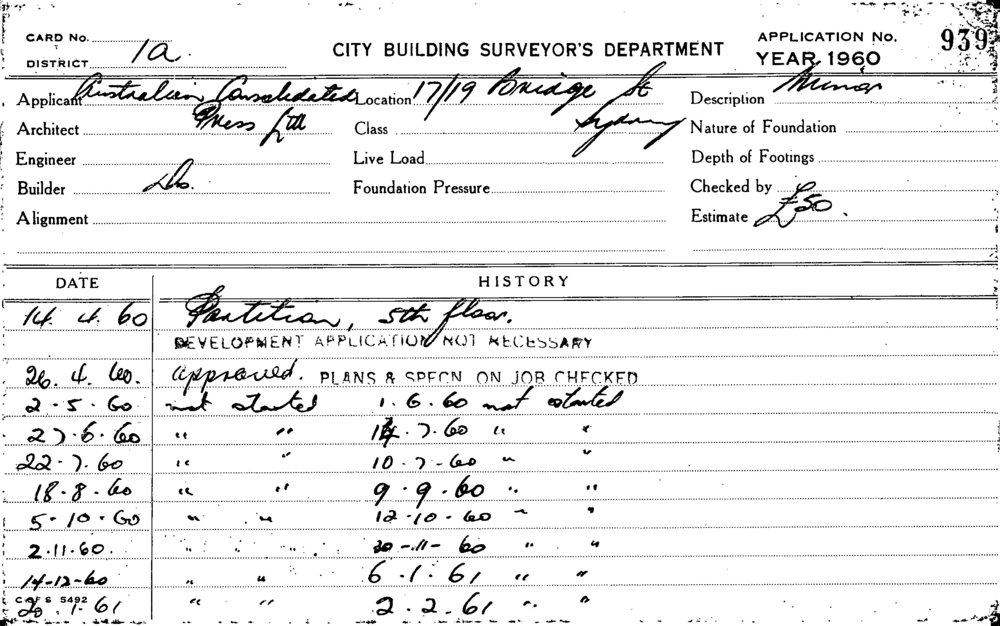 CARD No.
DISTRICT 1a
CITY BUILDING SURVEYOR'S DEPARTMENT
APPLICATION No. 939
YEAR 1960
Applicant Australian Consolidated Press Ltd
Location 17/19 Bridge St Sydney
Description Minor
Architect
Class
Nature of Foundation
Engineer
Live Load
Depth of Footings
Builder Do.
Foundation Pressure
Checked by
Alignment
Estimate £50.
DATE HISTORY
14. 4. 60 Partition, 5th floor.
DEVELOPMENT APPLICATION NOT NECESSARY
26. 4. 60. approved. PLANS & SPECN ON JOB CHECKED
2 - 5 - 60 not started 1. 6. 60 not started
27. 6. 60 " " 14. 7. 60 " "
22. 7. 60 " " 10 - 7 - 60 " "
18. 8. 60 " " 9. 9. 60 " "
5 - 10 - 60 " " 12 - 10 - 60 " "
2. 11. 60. " " 30 - 11 - 60 " "
14-12-60 " " 6. 1. 61 " "
C OF S 5492
20. 1. 61 " " 2. 2. 61 " "